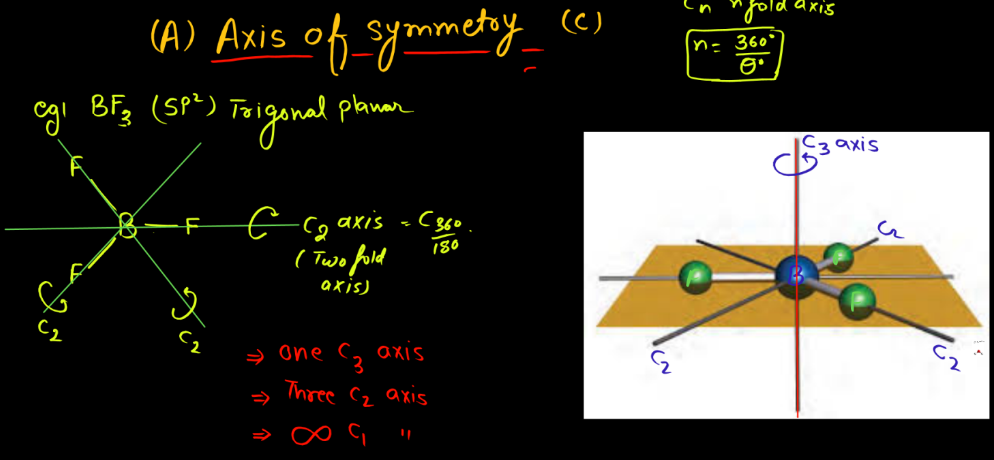 (A) Axis of symmetry (C)
Cn nfold axis
n = 360°
θ°
eg| BF₃ (SP²) Trigonal planar
F
B
F
F
C₂
C₂
C₂ axis = C 360
180.
(Two fold
axis)
⇒ one C₃ axis
⇒ Three C₂ axis
⇒ ∞ C₁ "
C₃ axis
C₂
F
F
B
F
C₂
C₂